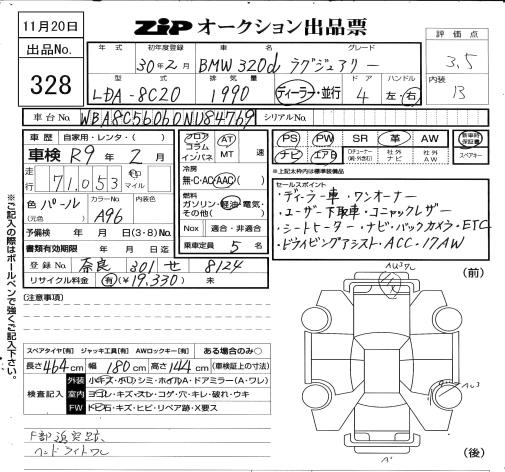 11月20日
出品No.
328
ZIP オークション出品票
評価点
3.5
内装
B
年式 初年度登録 車名 グレード
30年2月 BMW 320d ラグジュアリー
型式 排気量 ドア ハンドル
LDA-8C20 1990 ディーラー・並行 4 左・右
車台No. シリアルNo.
車歴 自家用・レンタ・( )
車検 R9年 2月
走行 71,053 km マイル
色 パール カラーNo. A96 内装色
(元色)
予備検 年 月 日(3・8)No.
書類有効期限 年 月 日迄
登録No. 奈良 301 せ 8124
リサイクル料金 有(¥19,330) 未
フロア コラム インパネ
AT MT 速
冷房
無・C・AC(AAC)( )
燃料
ガソリン・軽油・電気・その他( )
Nox 適合・非適合
乗車定員 5 名
PS PW SR 革 AW 新車時保証書
ナビ エアB 社外ナビ 社外AW スペアキー
※上記太枠内は標準装備品
セールスポイント
・ディーラー車・ワンオーナー
・ユーザー下取車・コニャックレザー
・シートヒーター・ナビ・バックカメラ・ETC
・ドライビングアシスト・ACC・17AW
※ご記入の際はボールペンで強くご記入下さい。
(注意事項)
(前)
スペアタイヤ[有] ジャッキ工具[有] AWロックキー[有] ある場合のみ○
長さ464cm 幅180cm 高さ144cm (車検証上の寸法)
検査記入
外装 小キズ・小凹・シミ・ホイルA・ドアミラー(A・ワレ)
室内 ヨゴレ・キズ・スレ・コゲ・穴・キレ・破れ・ウキ
FW トビ石・キズ・ヒビ・リペア跡・X要ス
ヘッドライトワレ
(後)